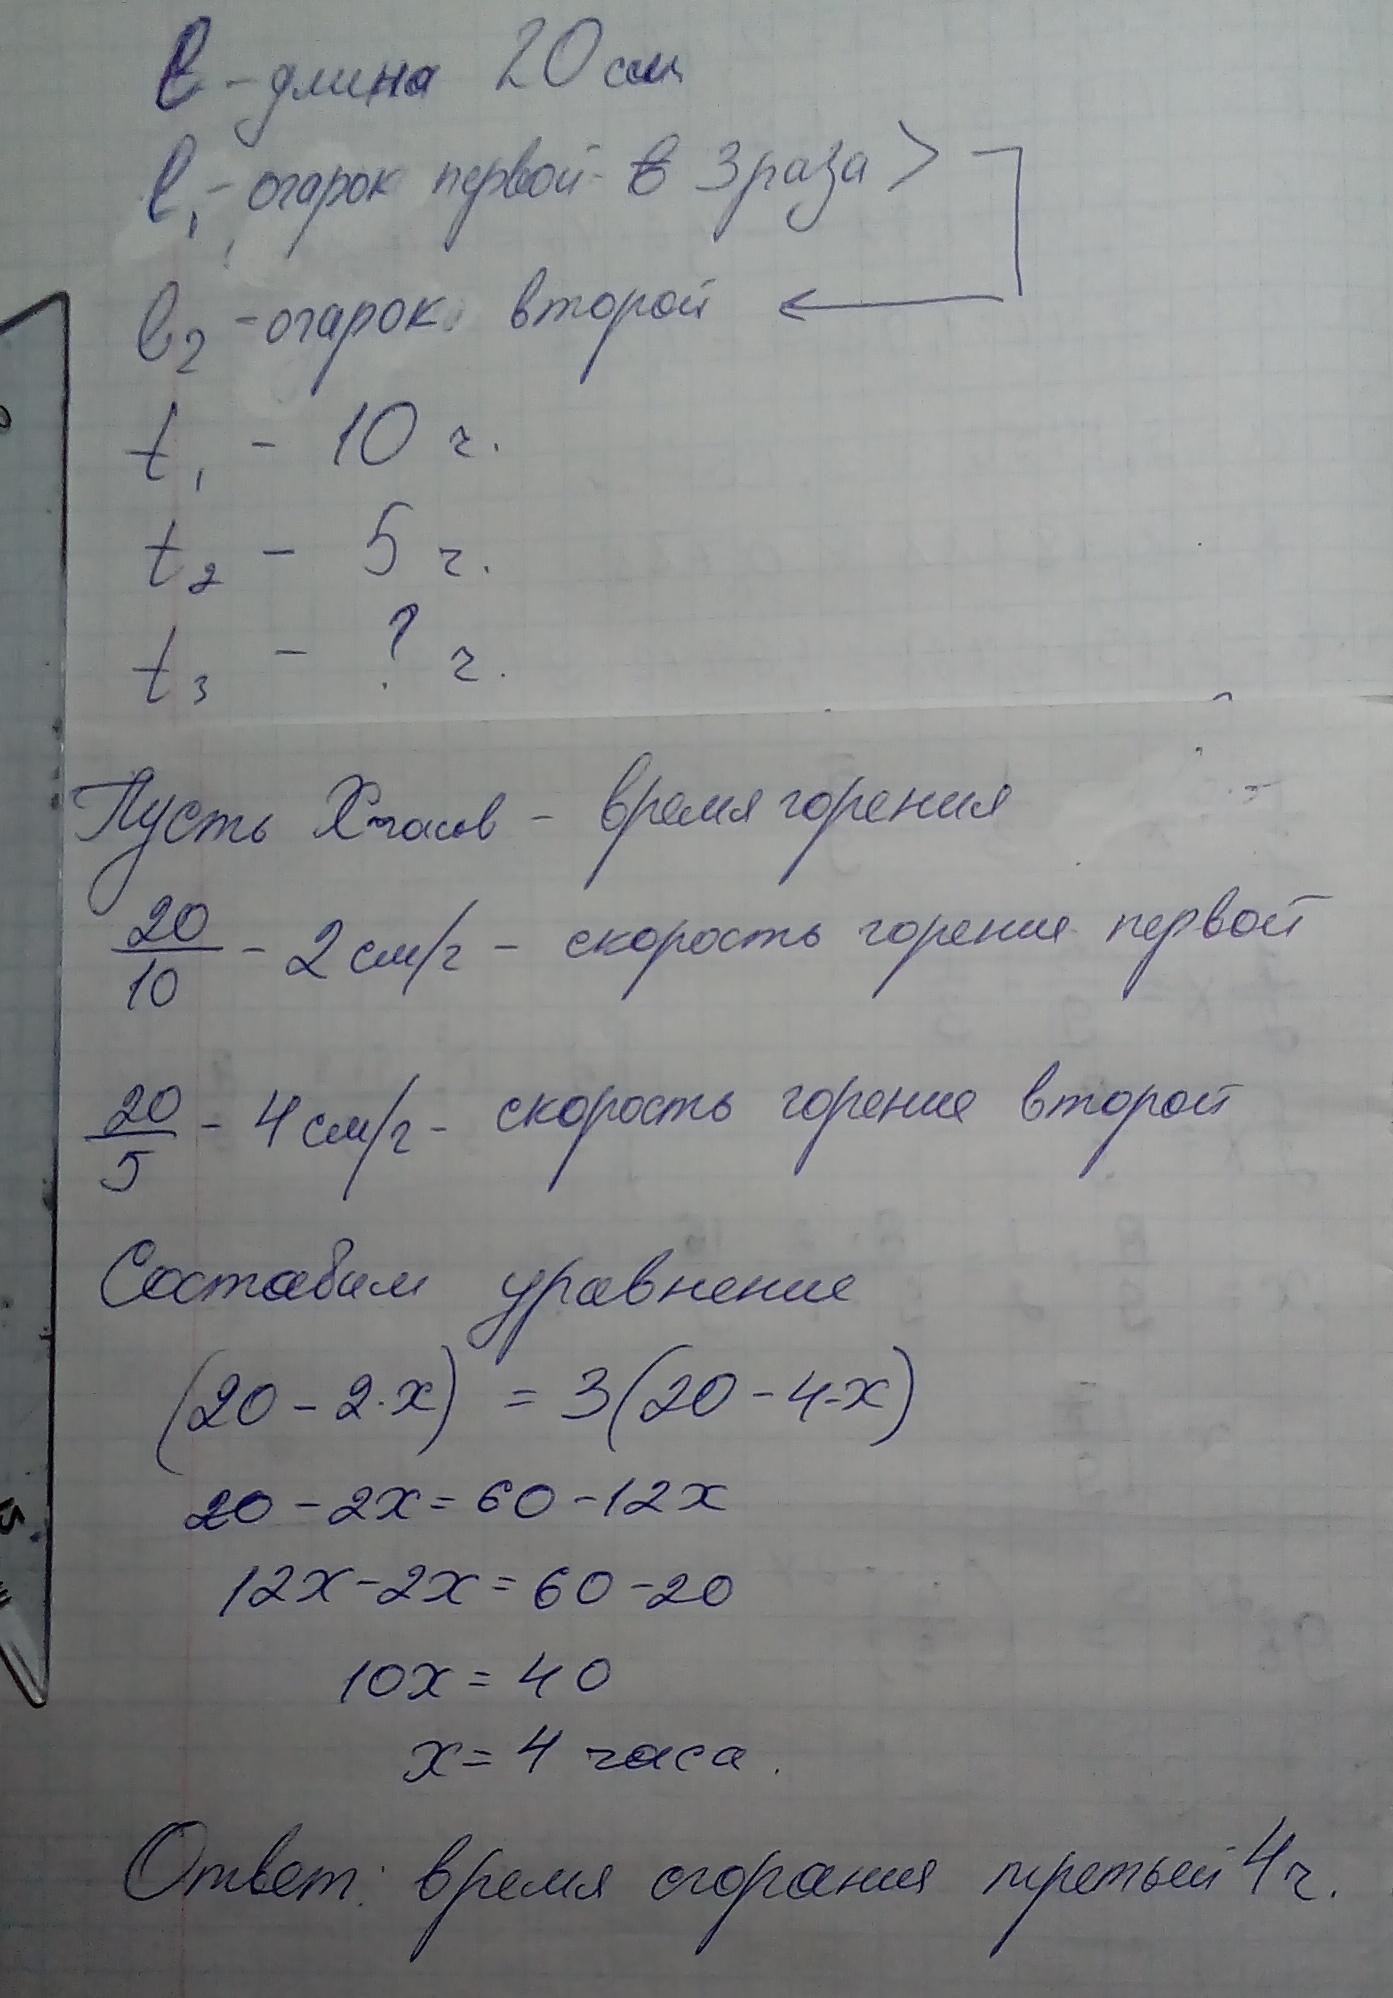 ℓ - длина 20 см
ℓ₁ - огарок первой - в 3 раза >
ℓ₂ - огарок второй ←
t₁ - 10 ч.
t₂ - 5 ч.
t₃ - ? ч.
Пусть X часов - время горения
20/10 - 2 см/г - скорость горение первой
20/5 - 4 см/г - скорость горение второй
Составим уравнение
(20 - 2·x) = 3(20 - 4·x)
20 - 2x = 60 - 12x
12x - 2x = 60 - 20
10x = 40
x = 4 часа.
Ответ: время сгорания третьей 4 ч.